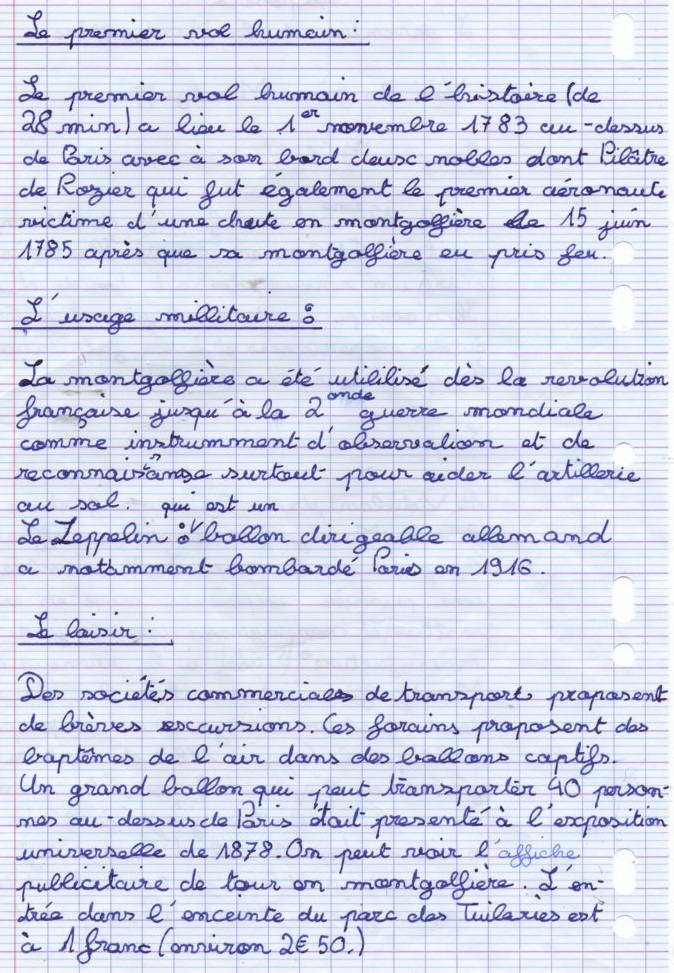 Le premier vol humain :
Le premier vol humain de l'histoire (de
28 min) a lieu le 1er novembre 1783 au-dessus
de Paris avec à son bord deusc nobles dont Pilâtre
de Rozier qui fut également le premier aéronaute
victime d'une chute en montgolfière le 15 juin
1785 après que sa montgolfière eu pris feu.
L'usage millitaire :
La montgolfière a été utililisé dès la revolution
française jusqu'à la 2onde guerre mondiale
comme instrumment d'observation et de
reconnaissanse surtout pour aider l'artillerie
au sol.
Le Zeppelin : qui est un ballon dirigeable allemand
a notamment bombardé Paris en 1916.
Le loisir :
Des sociétés commerciales de transports proposent
de brèves escursions. Ces forains proposent des
baptêmes de l'air dans des ballons captifs.
Un grand ballon qui peut transporter 40 person-
nes au-dessus de Paris était presenté à l'exposition
universelle de 1878. On peut voir l'affiche
publicitaire de tour en montgolfière. L'en-
trée dans l'enceinte du parc des Tuilaries est
à 1 franc (environ 2€50.)